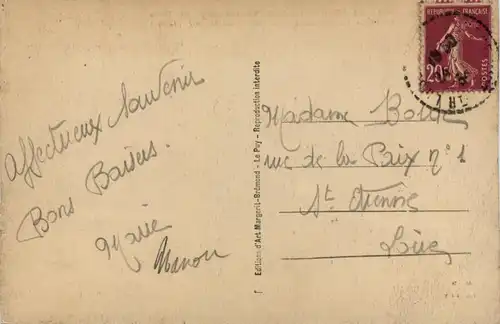 Affectueux Souvenir
Bons Baisers.
Marie
Manon
Editions d'Art Margerit-Brémond - Le Puy - Reproduction interdite
REPUBLIQUE FRANÇAISE
20c
POSTES
Madame
rue de la Paix n° 1
St. Etienne
Loire